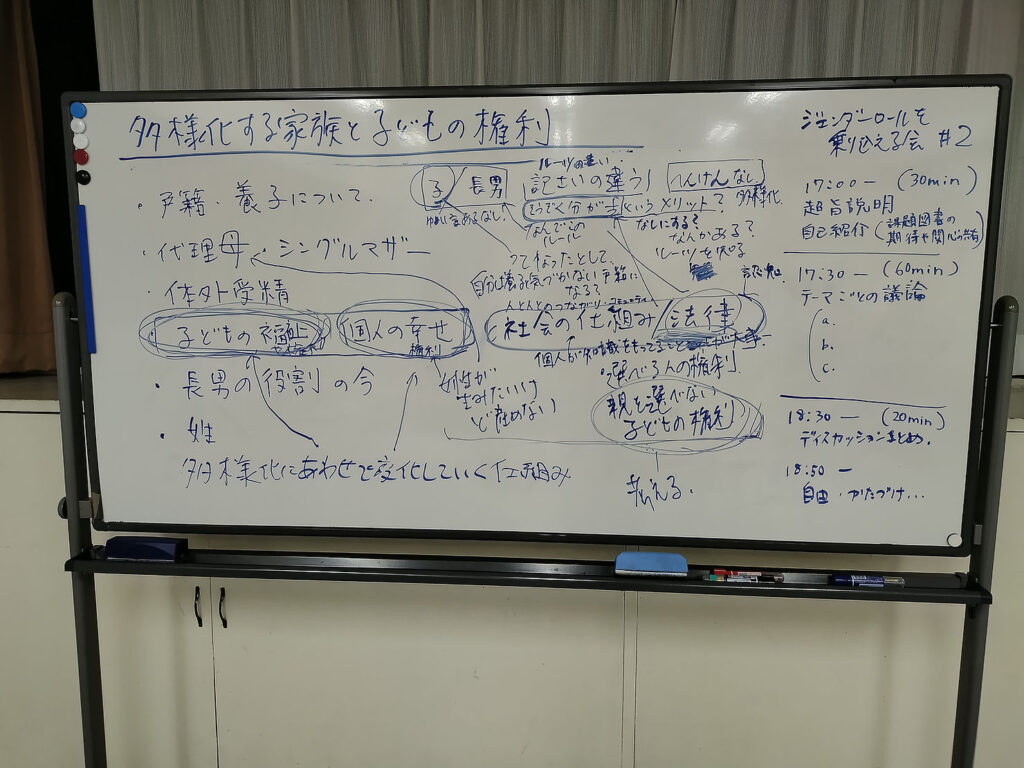 多様化する家族と子どもの権利
・戸籍・養子について
・代理母 シングルマザー
・体外受精
・子どもの福祉 個人の幸せ
権利
・長男の役割の今
・姓
多様化にあわせて変化していく仕組み
子 長男
ルーツの違い
記さいの違う
へんけんなし
多様化
そうぞく分が
というメリット?
なんでこの
ルール
なしにする?
なんかある?
ルーツを知る
って待ったとして
自分は
気づかない戸籍に
なる?
認知
社会の仕組み 法律
個人が知識をもってること
選べる人の権利
女性が
生みたいけ
ど産めない
親を選べない
子どもの権利
考える.
ジェンダーロールを
乗り越える会 #2
17:00 — (30min)
趣旨説明
自己紹介 (課題図書の
期待や関心の共有)
17:30 — (60min)
テーマごとの議論
a.
b.
c.
18:30 — (20min)
ディスカッションまとめ.
18:50 —
自由・かたづけ...